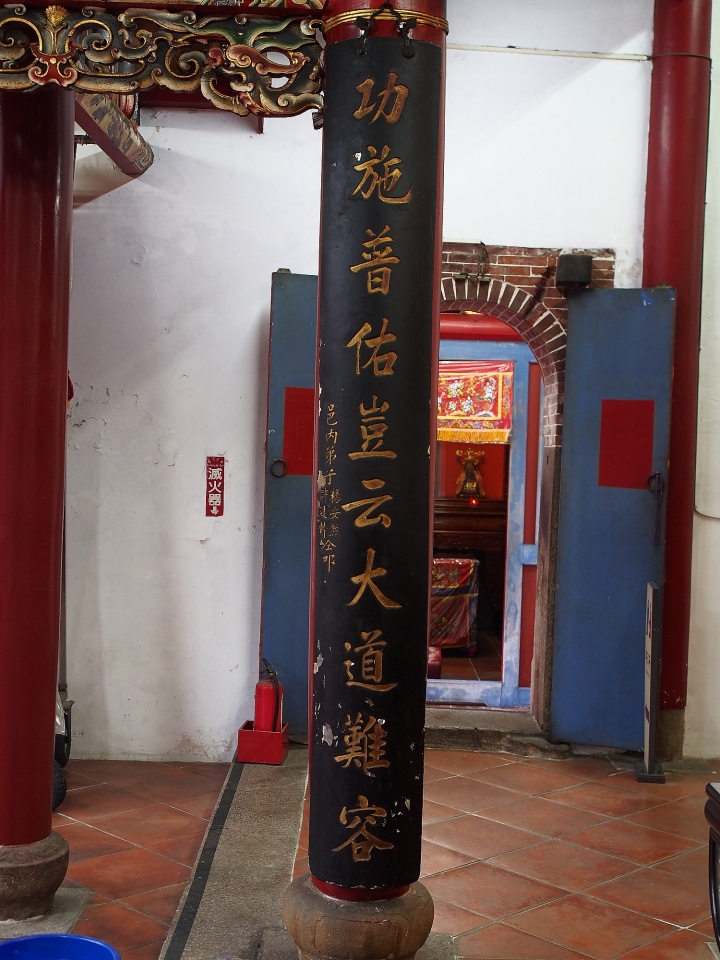 功施普佑豈云大道難容
邑內弟子
叩
滅火器